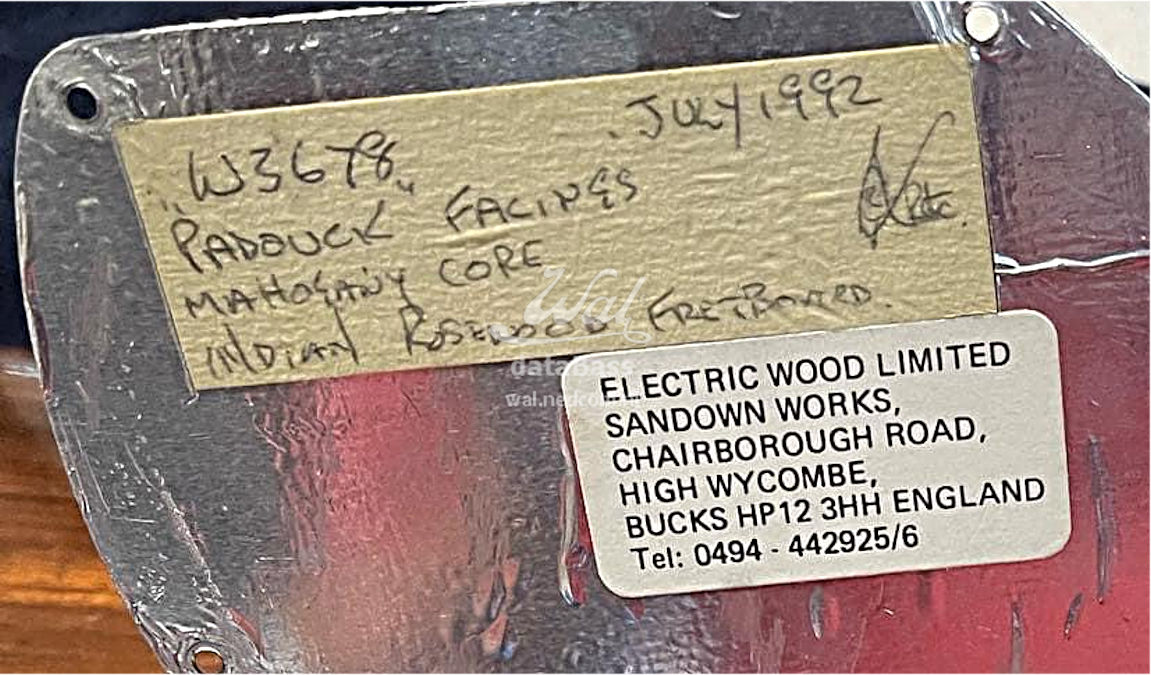 "W3678" JULY 1992
PADOUCK FACINGS
MAHOGANY CORE
INDIAN ROSEWOOD FRETBOARD.
Wal
databass
ELECTRIC WOOD LIMITED
SANDOWN WORKS,
CHAIRBOROUGH ROAD,
HIGH WYCOMBE,
BUCKS HP12 3HH ENGLAND
Tel: 0494 - 442925/6